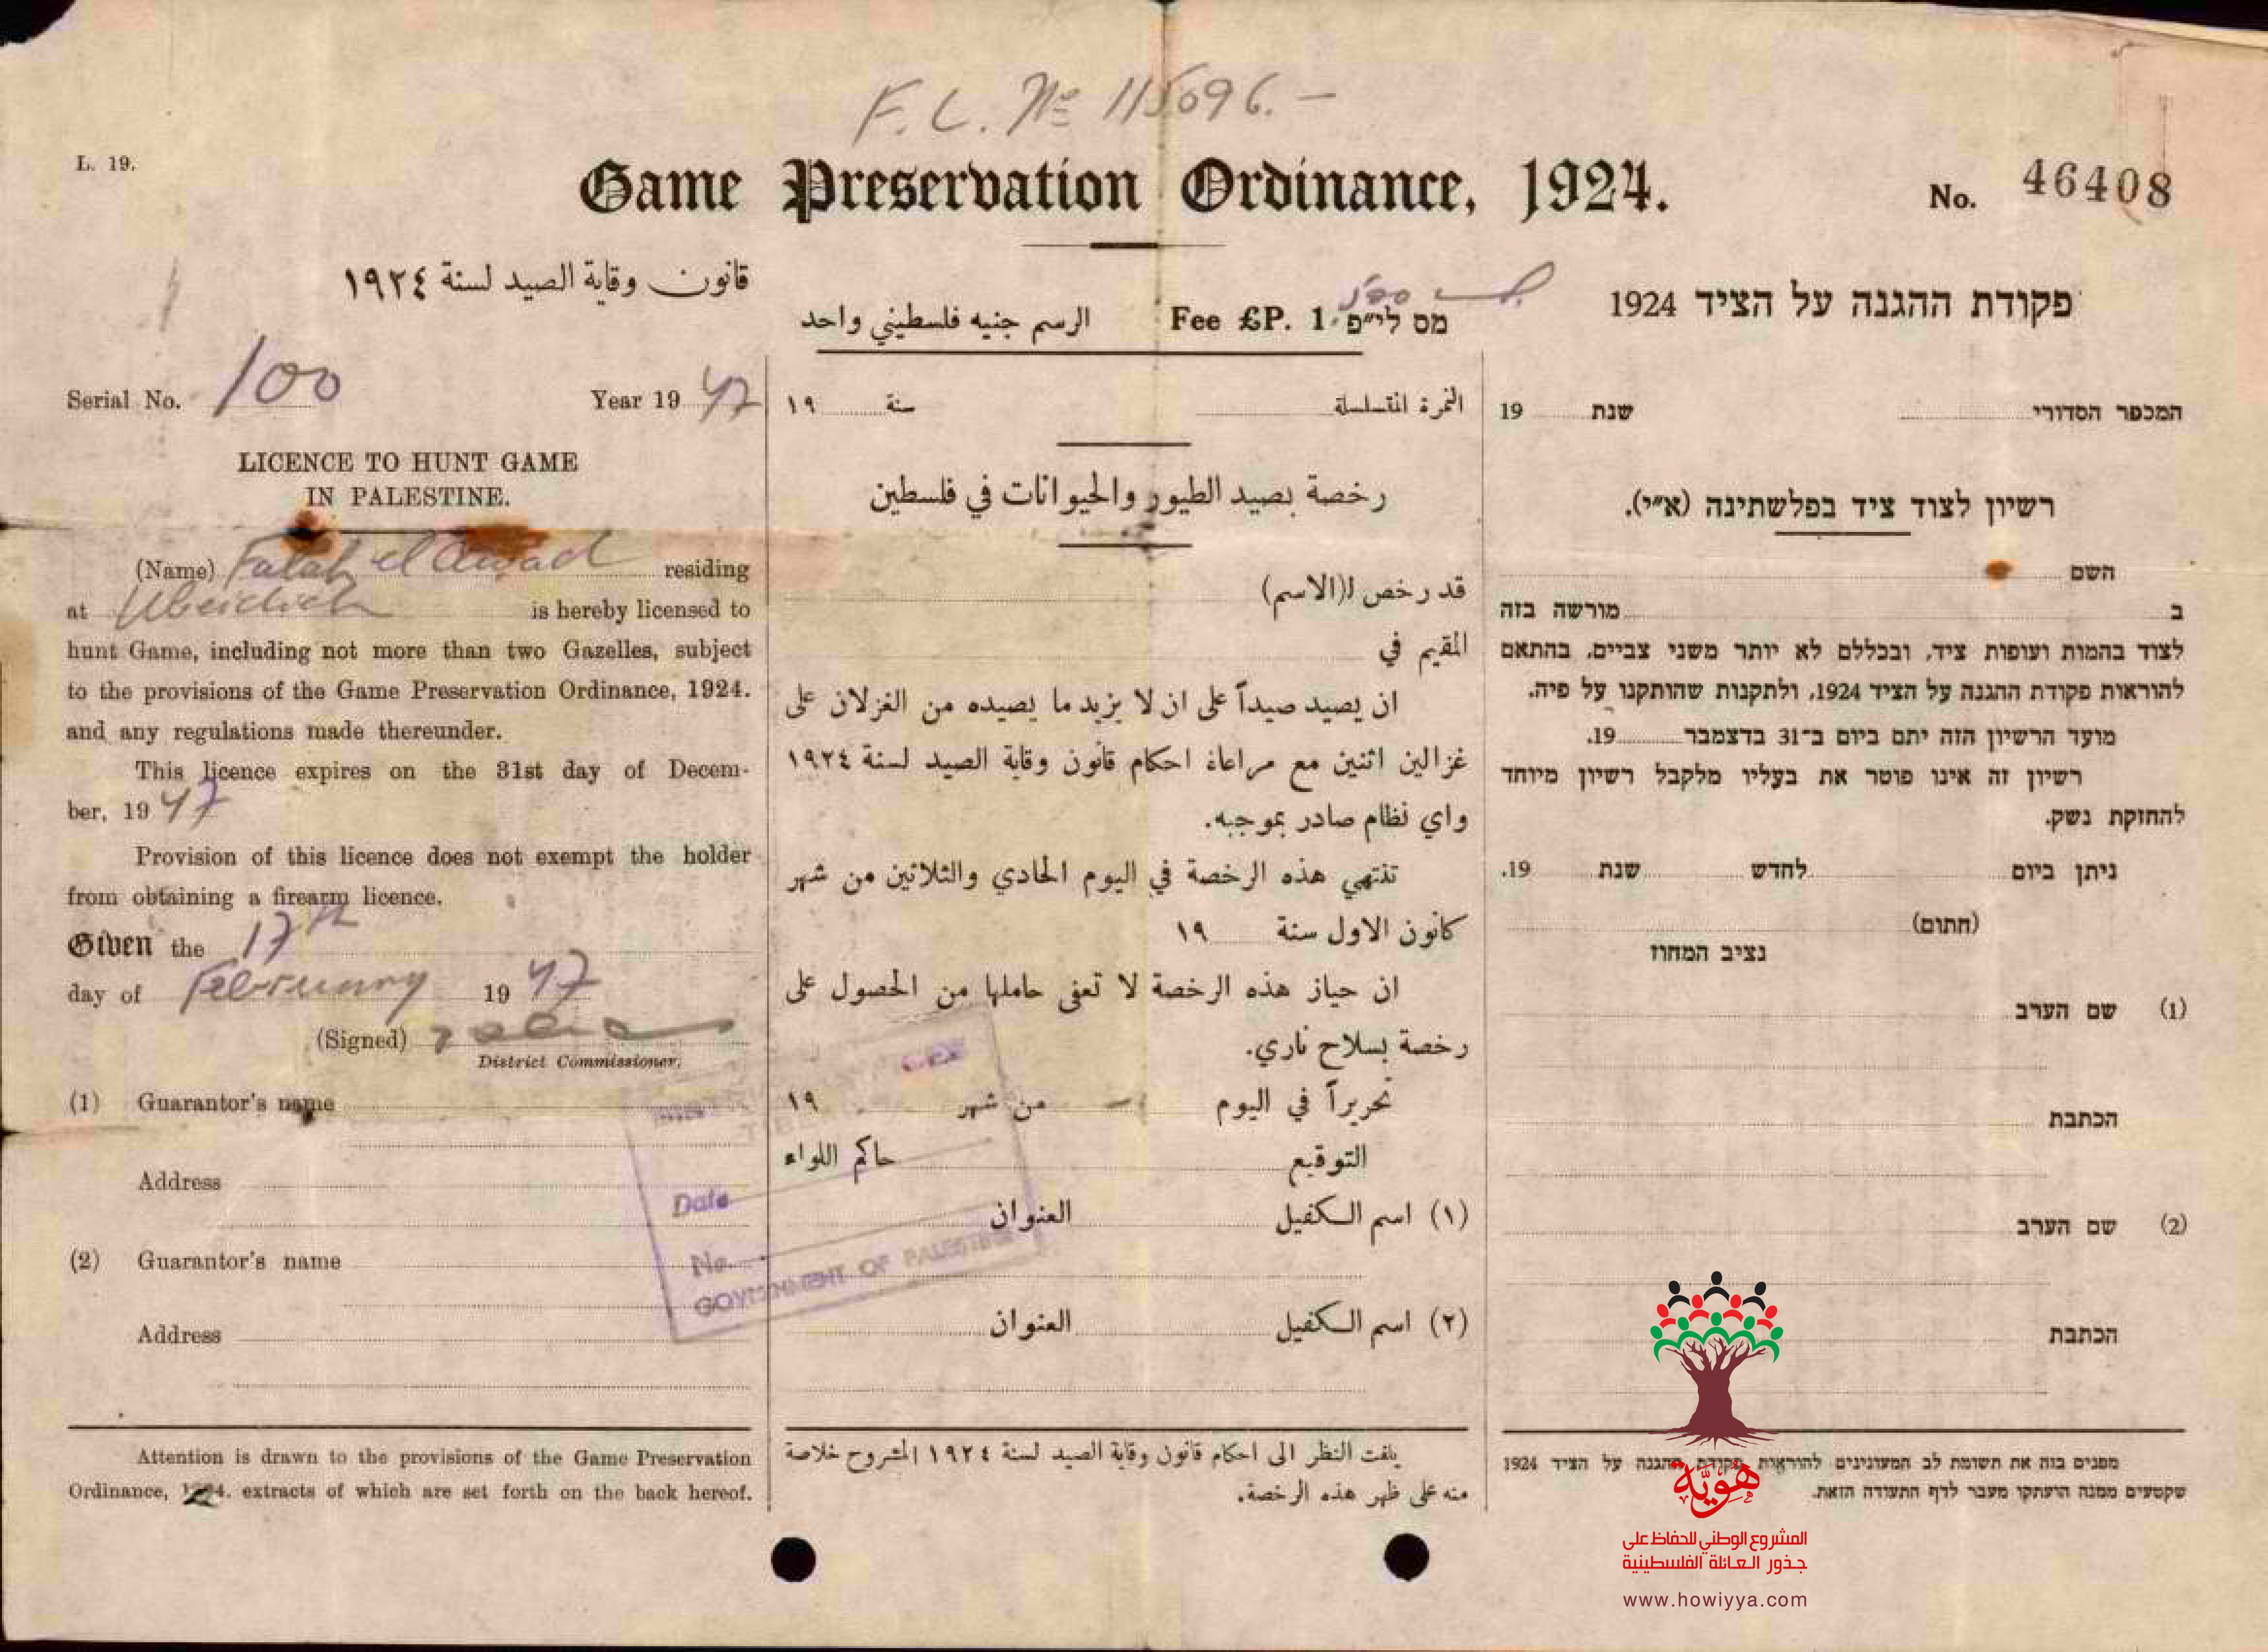 F. L. No 115096. –
L. 19.
Game Preservation Ordinance, 1924.
No. 46408
قانون وقاية الصيد لسنة ١٩٢٤
الرسم جنيه فلسطيني واحد
Fee £P. 1. מס לי״פ
פקודת ההגנה על הציד 1924
Serial No. 100 Year 19 47
LICENCE TO HUNT GAME
IN PALESTINE.
(Name) Falah el Awad residing
at Ubeidieh is hereby licensed to
hunt Game, including not more than two Gazelles, subject
to the provisions of the Game Preservation Ordinance, 1924.
and any regulations made thereunder.
This licence expires on the 31st day of Decem-
ber, 19 47
Provision of this licence does not exempt the holder
from obtaining a firearm licence.
Given the 17th
day of February 19 47
(Signed)
District Commissioner.
(1) Guarantor's name
Address
(2) Guarantor's name
Address
Attention is drawn to the provisions of the Game Preservation
Ordinance, 1924. extracts of which are set forth on the back hereof.
النمرة المتسلسلة سنة ١٩
رخصة بصيد الطيور والحيوانات في فلسطين
قد رخص ل(الاسم)
المقيم في
ان يصيد صيداً على ان لا يزيد ما يصيده من الغزلان على
غزالين اثنين مع مراعاة احكام قانون وقاية الصيد لسنة ١٩٢٤
واي نظام صادر بموجبه.
تنتهي هذه الرخصة في اليوم الحادي والثلاثين من شهر
كانون الاول سنة ١٩
ان حياز هذه الرخصة لا تعفى حاملها من الحصول على
رخصة بسلاح ناري.
تحريراً في اليوم من شهر ١٩
التوقيع حاكم اللواء
(١) اسم الكفيل العنوان
(٢) اسم الكفيل العنوان
يلفت النظر الى احكام قانون وقاية الصيد لسنة ١٩٢٤ المشروح خلاصة
منه على ظهر هذه الرخصة.
Date
No.
GOVERNMENT OF PALESTINE
המספר הסדורי שנת 19
רשיון לצוד ציד בפלשתינה (א״י).
השם
ב מורשה בזה
לצוד בהמות ועופות ציד, ובכללם לא יותר משני צביים, בהתאם
להוראות פקודת ההגנה על הציד 1924, ולתקנות שהותקנו על פיה.
מועד הרשיון הזה יתם ביום ב־31 בדצמבר 19.
רשיון זה אינו פוטר את בעליו מלקבל רשיון מיוחד
להחזקת נשק.
ניתן ביום לחדש שנת 19.
(חתום)
נציב המחוז
(1) שם הערב
הכתבת
(2) שם הערב
הכתבת
מפנים בזה את תשומת לב המעונינים להוראות פקודת ההגנה על הציד 1924
שקטעים ממנה הועתקו מעבר לדף התעודה הזאת.
هويّة
المشروع الوطني للحفاظ على
جذور العائلة الفلسطينية
www.howiyya.com